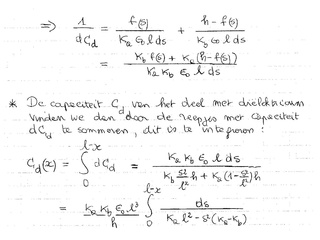 ⇒ 1/dC_d = f(s)/(K_a ε₀ l ds) + (h - f(s))/(K_b ε₀ l ds)
= (K_b f(s) + K_a (h - f(s)))/(K_a K_b ε₀ l ds)
* De capaciteit C_d van het deel met diëlektricum
vinden we dan door de reepjes met capaciteit
dC_d te sommeren, dit is te integreren :
C_d(x) = ∫₀^(l-x) dC_d = (K_a K_b ε₀ l ds)/(K_b s²/l² h + K_a (1 - s²/l²) h)
= (K_a K_b ε₀ l³)/h ∫₀^(l-x) ds/(K_a l² - s² (K_a - K_b))